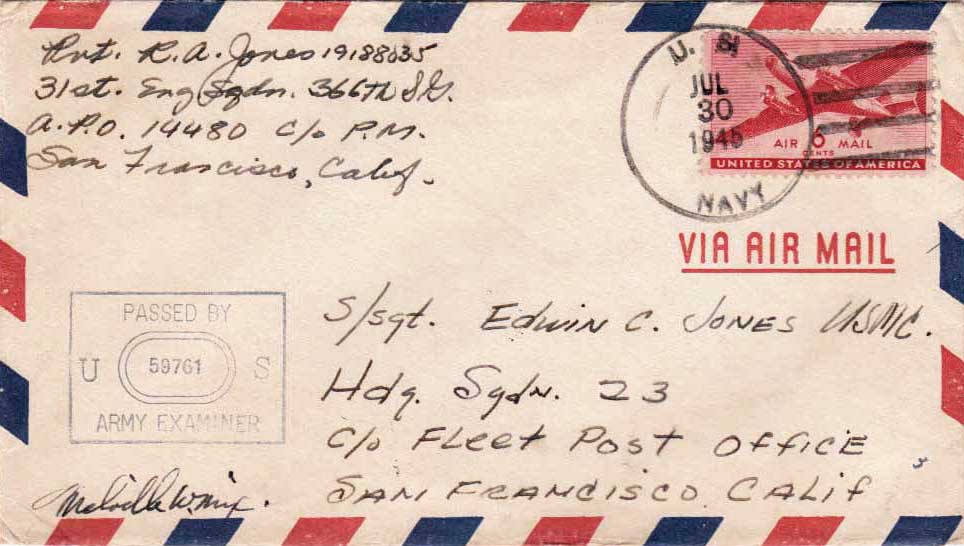 Pvt. R. A. Jones 19188035
31st. Eng Sqdn. 366th S.G.
A.P.O. 14480 c/o P.M.
San Francisco, Calif.
U. S.
JUL
30
1945
NAVY
AIR 6 MAIL
CENTS
UNITED STATES OF AMERICA
VIA AIR MAIL
PASSED BY
U 59761 S
ARMY EXAMINER
S/sgt. Edwin C. Jones USMC.
Hdq. Sqdn. 23
c/o Fleet Post Office
San Francisco Calif